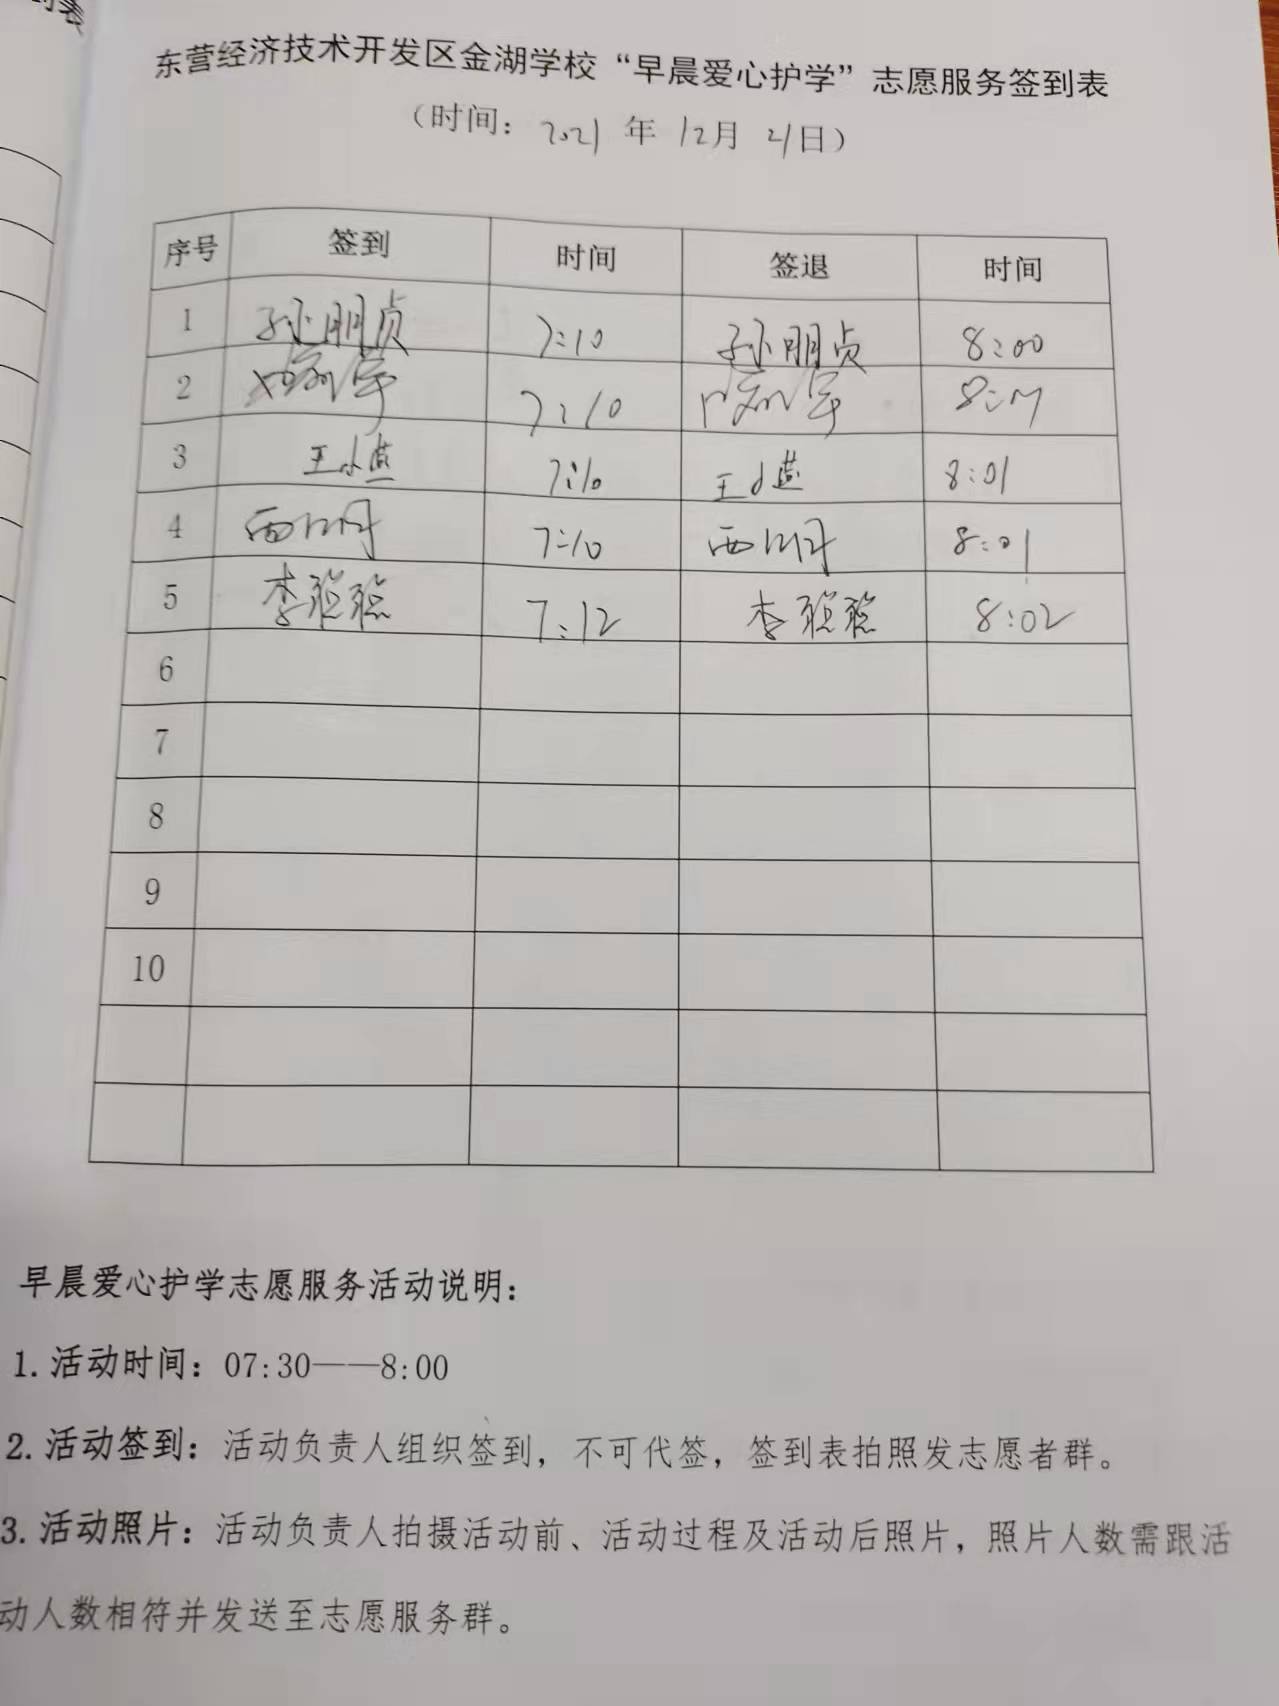 到表
东营经济技术开发区金湖学校“早晨爱心护学”志愿服务签到表
（时间：2021 年 12月 21日）
序号 签到 时间 签退 时间
1 孙朋贞 7:10 孙朋贞 8:00
2 7:10 8:
3 王小燕 7:10 王小燕 8:01
4 西 7:10 西 8:01
5 李聪聪 7:12 李聪聪 8:02
6
7
8
9
10
早晨爱心护学志愿服务活动说明：
1. 活动时间：07:30——8:00
2. 活动签到：活动负责人组织签到，不可代签，签到表拍照发志愿者群。
3. 活动照片：活动负责人拍摄活动前、活动过程及活动后照片，照片人数需跟活
动人数相符并发送至志愿服务群。